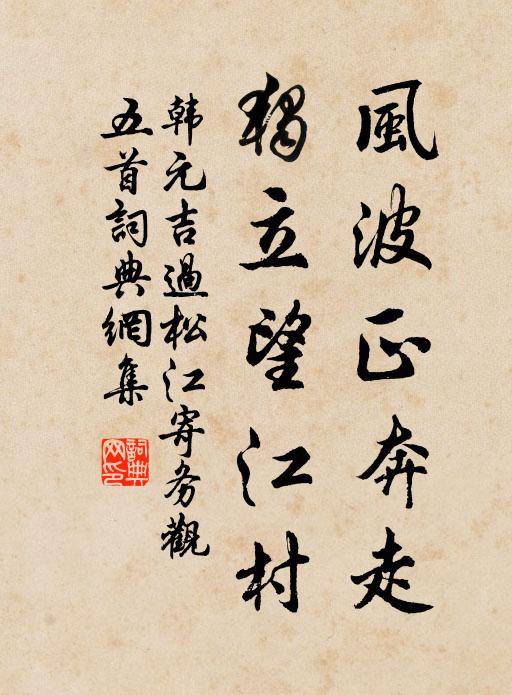 風波正奔走
獨立望江村
韩元吉過松江寄务觀
五首詞典網集
詞典网印